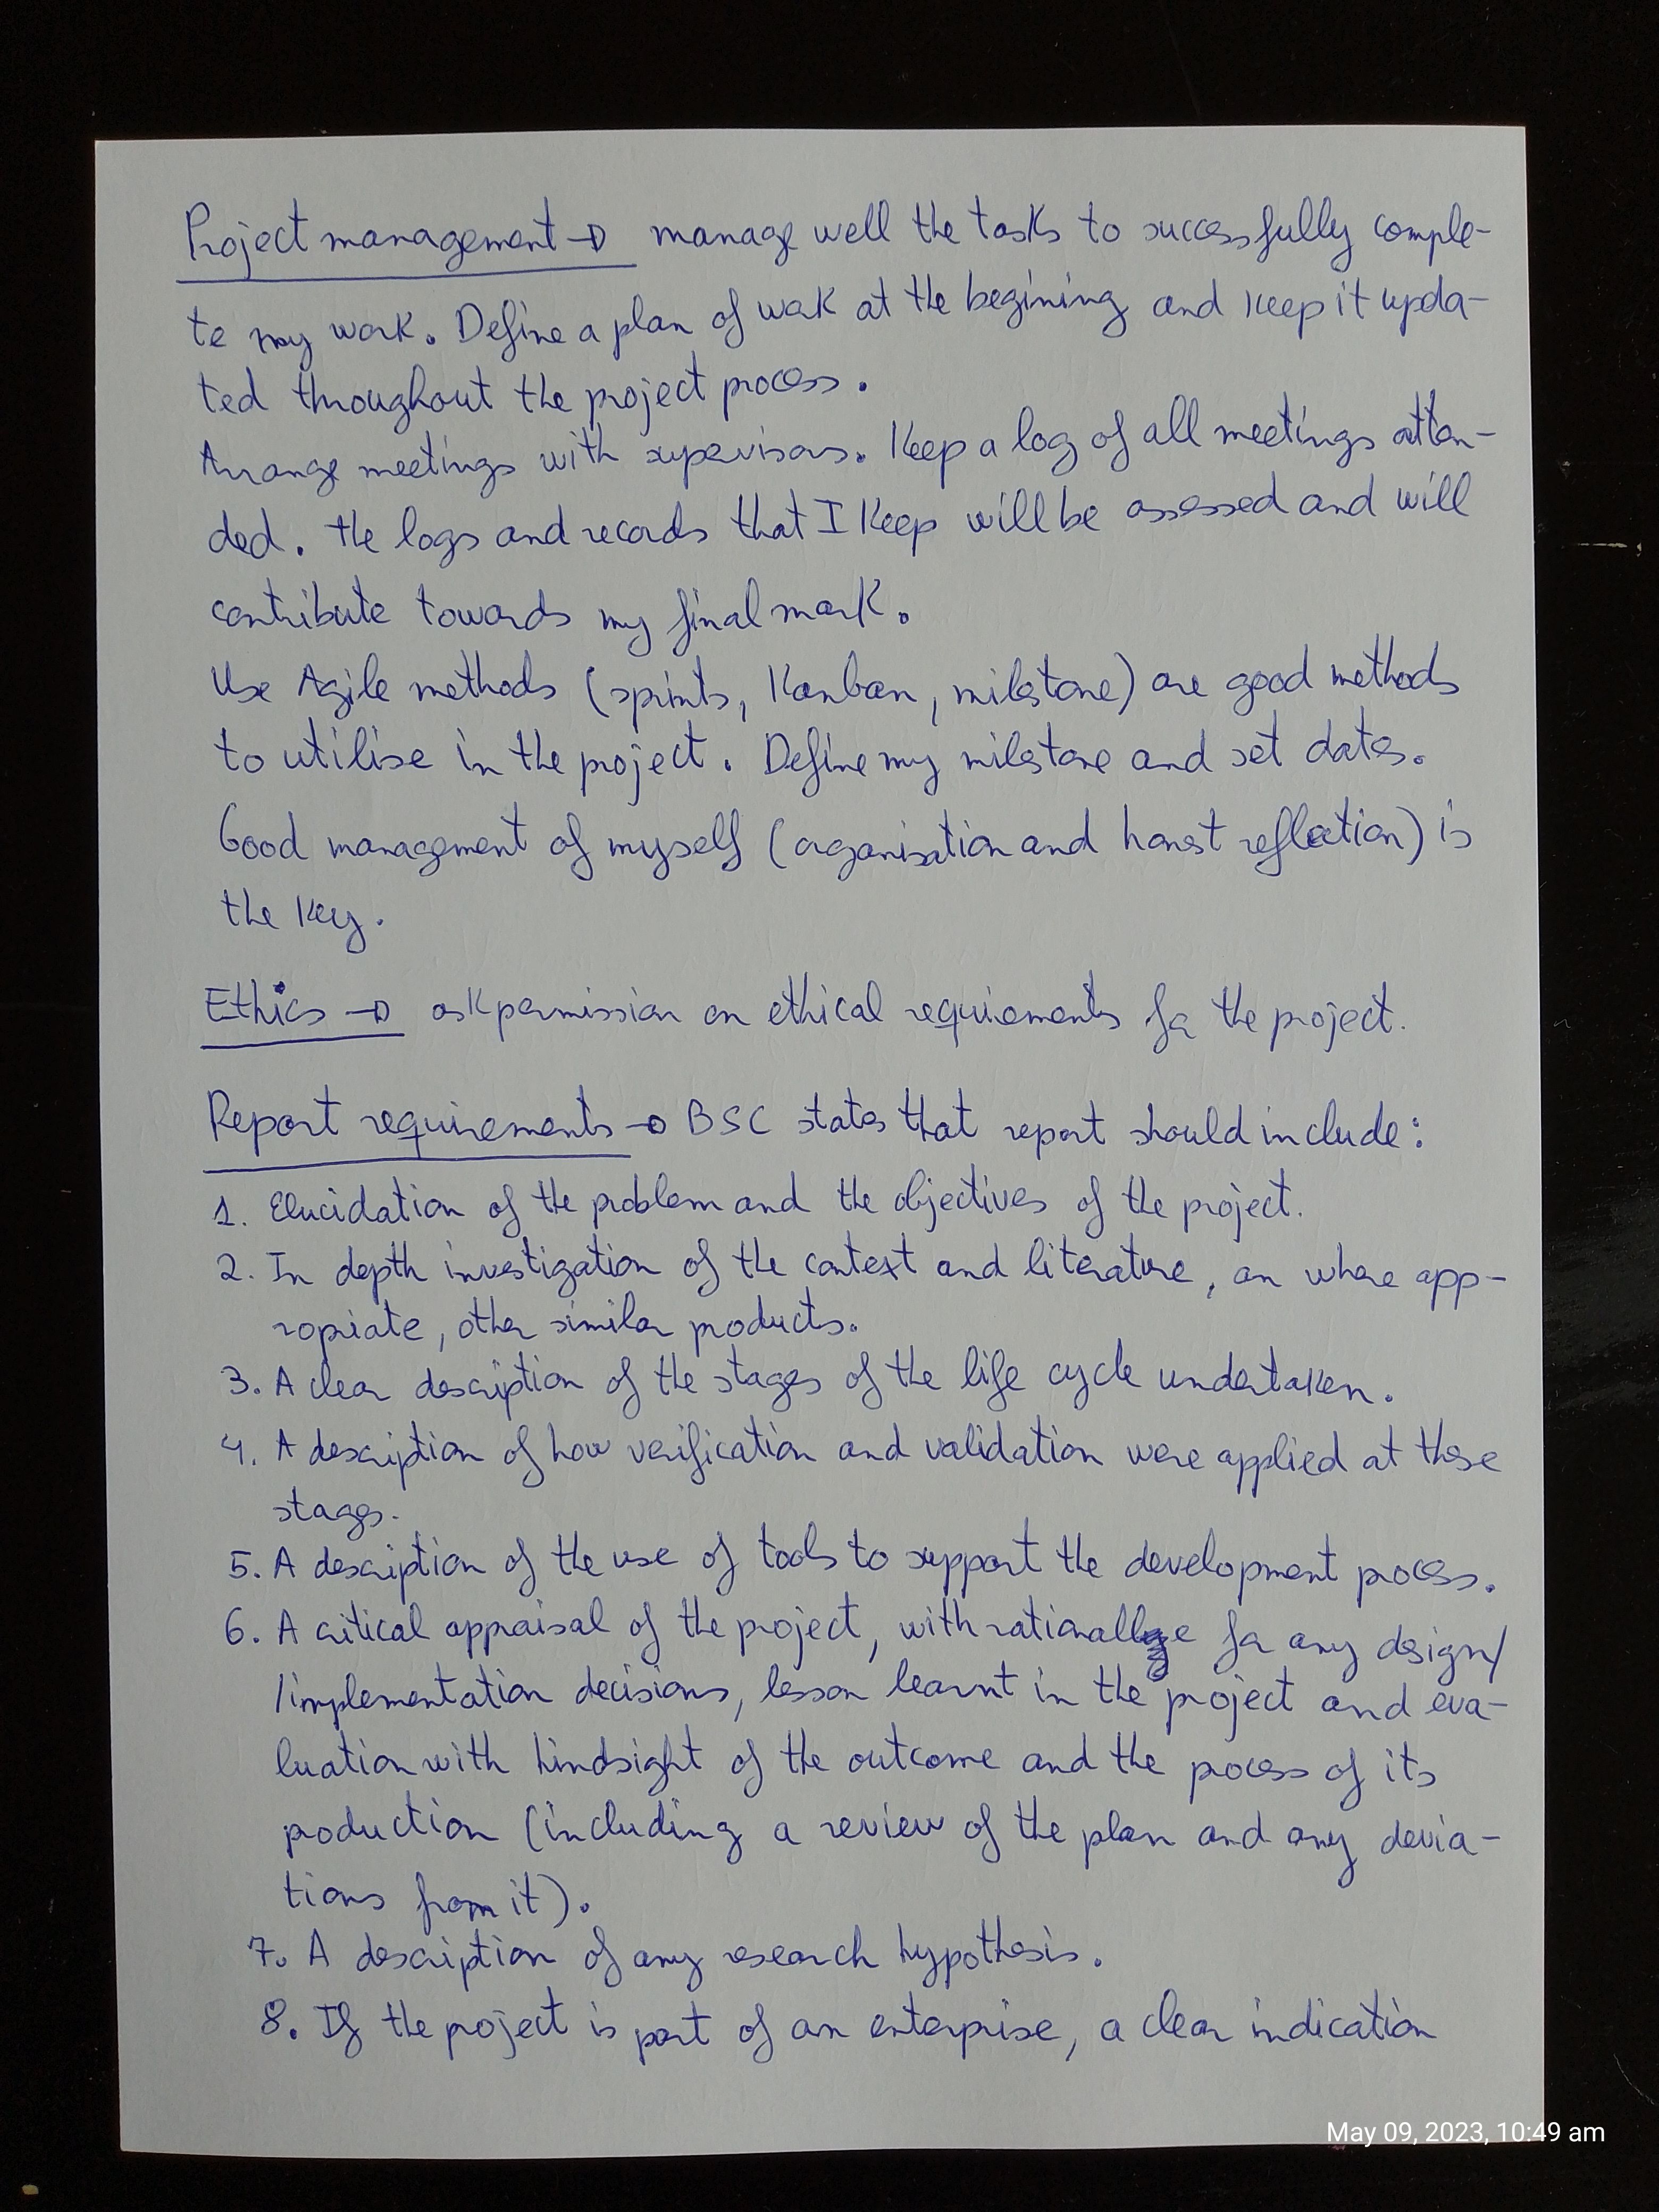 Project management → manage well the tasks to successfully comple-
te my work. Define a plan of work at the begining and keep it upda-
ted throughout the project process.
Arrange meetings with supervisors. Keep a log of all meetings atten-
ded. The logs and records that I keep will be assessed and will
contribute towards my final mark.
Use Agile methods (sprints, Kanban, milestone) are good methods
to utilise in the project. Define my milestone and set dates.
Good management of myself (organisation and honest reflection) is
the key.
Ethics → ask permission on ethical requirements for the project.
Report requirements → BSC states that report should include:
1. Elucidation of the problem and the objectives of the project.
2. In depth investigation of the context and literature, an where app-
ropiate, other similar products.
3. A clear description of the stages of the life cycle undertaken.
4. A description of how verification and validation were applied at these
stages.
5. A description of the use of tools to support the development process.
6. A critical appraisal of the project, with rationalle for any design/
/implementation decisions, lesson learnt in the project and eva-
luation with hindsight of the outcome and the process of its
production (including a review of the plan and any devia-
tions from it).
7. A description of any research hypothesis.
8. If the project is part of an enterprise, a clear indication
May 09, 2023, 10:49 am